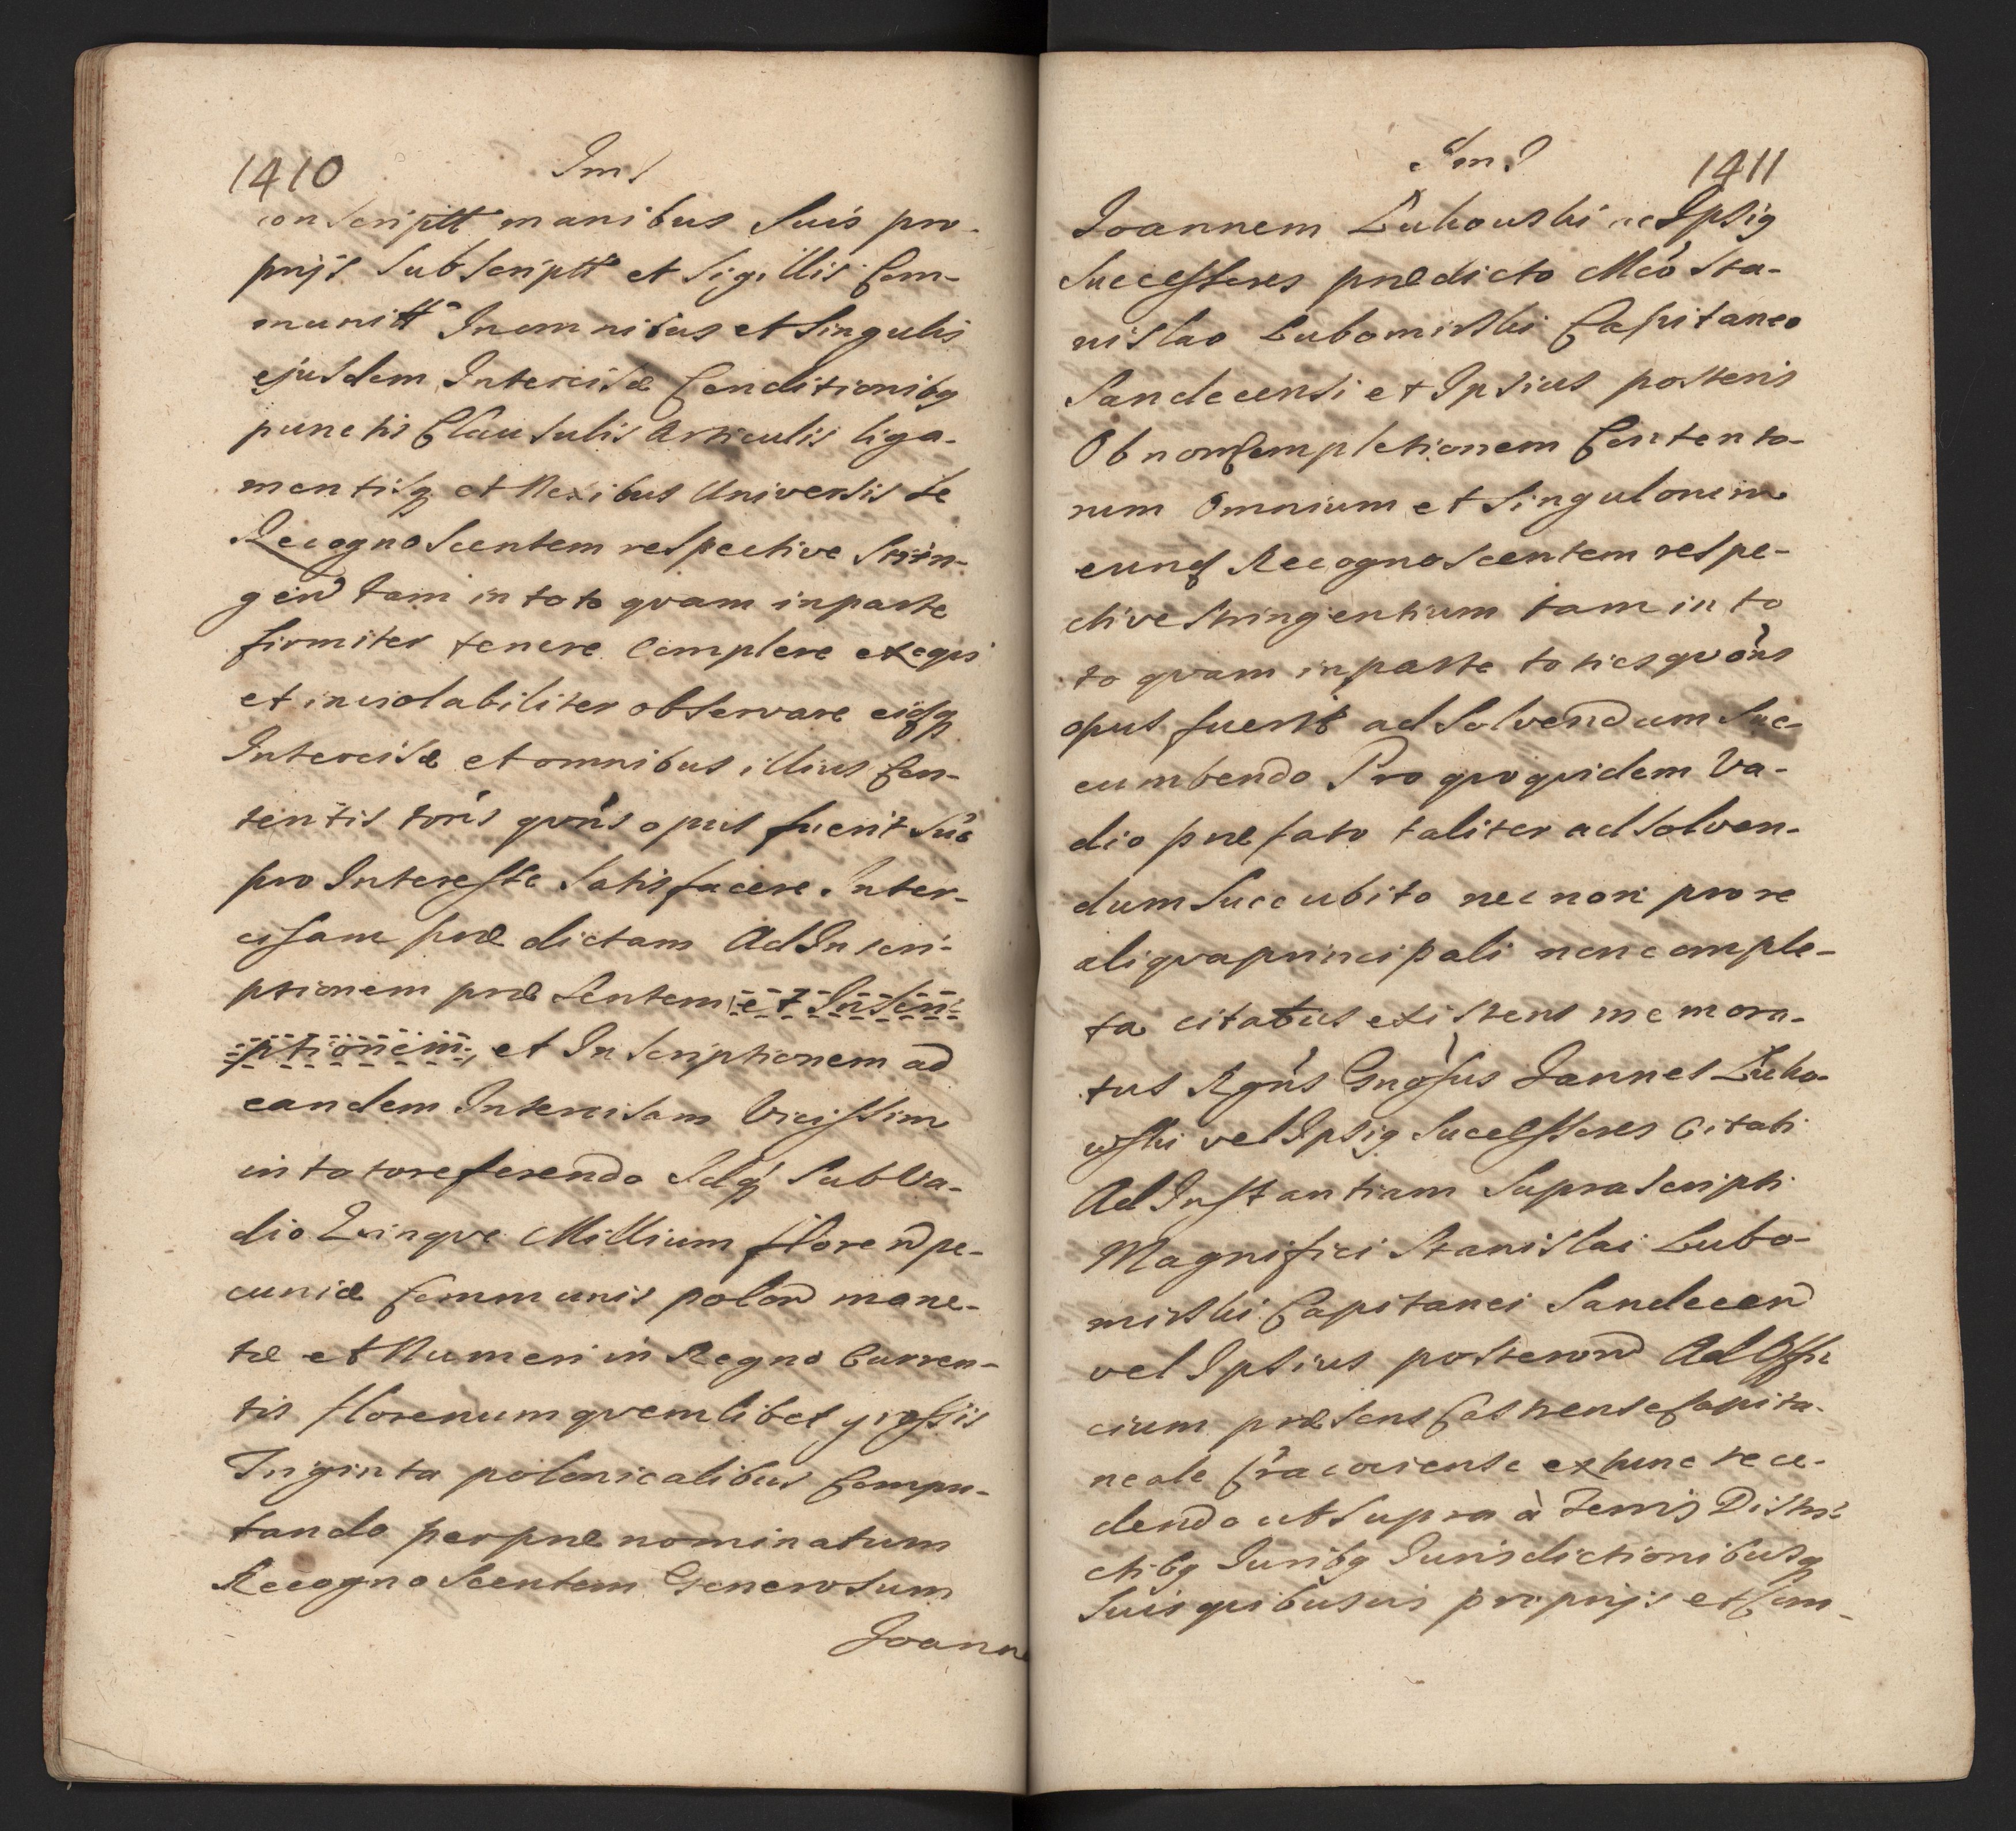 1410 Im
conscriptt manibus Suis pro-
prijs Subscriptt et Sigillis Com-
munitt In omnibus et Singulis
ejusdem Intercisæ Conditionibq
punctis Clausulis Articulis liga-
mentisq et Nexibus Universis Se
Recognoscentem respective Strin-
gen tam in toto qvam in parte
firmiter tenere Complere exeqvi
et inviolabiliter observare eidq
Intercisæ et omnibus illius Con-
tentis toris qvors opus fuerit Sub
pro Interesse Satisfacere Inter-
cisam præ dictam Ad Inscri-
ptionem præ Sentem et Inscri-
ptionem, et Inscriptionem ad
eandem Intercisam Vicissim
in toto referendo Idq Sub Va-
dio Qvinqve Millium floren pe-
cuniæ Communis polon mone-
tæ et Numeri in Regno Curren-
tis florenum qvemlibet grossis
Triginta polonicalibus Compu-
tando per præ nominatum
Recognoscentem Generosum
Joanne
Im 1411
Joannem Lukowski ac Ipsiq
Successores prædicto Mco Sta-
nislao Lubomirski Capitaneo
Sandecensi et Ipsius posteris
Ob non Completionem Contento-
rum Omnium et Singulorum
eund Recognoscentem respe-
ctive Stringentium tam in to
to qvam in parte toties qvors
opus fuerit ad Solvendum Suc-
cumbendo Pro qvo qvidem Va-
dio præfato taliter ad Solven-
dum Succubito nec non pro re
aliqva principali non comple-
ta citatus existens memora-
tus Rgns Gnosus Joannes Luko-
wski vel Ipsiq Successores Citati
Ad Instantiam Supra Scripti
Magnifici Stanislai Lubo-
mirski Capitanei Sandecen
vel Ipsius posteror Ad Offi
cium præsens Castrense Capita-
neale Cracoviense ex hunc rece-
dendo ut Supra à Terris Distri-
ctibq Juribq Jurisdictionibusq
Suis qvibusvis proprijs et Com-